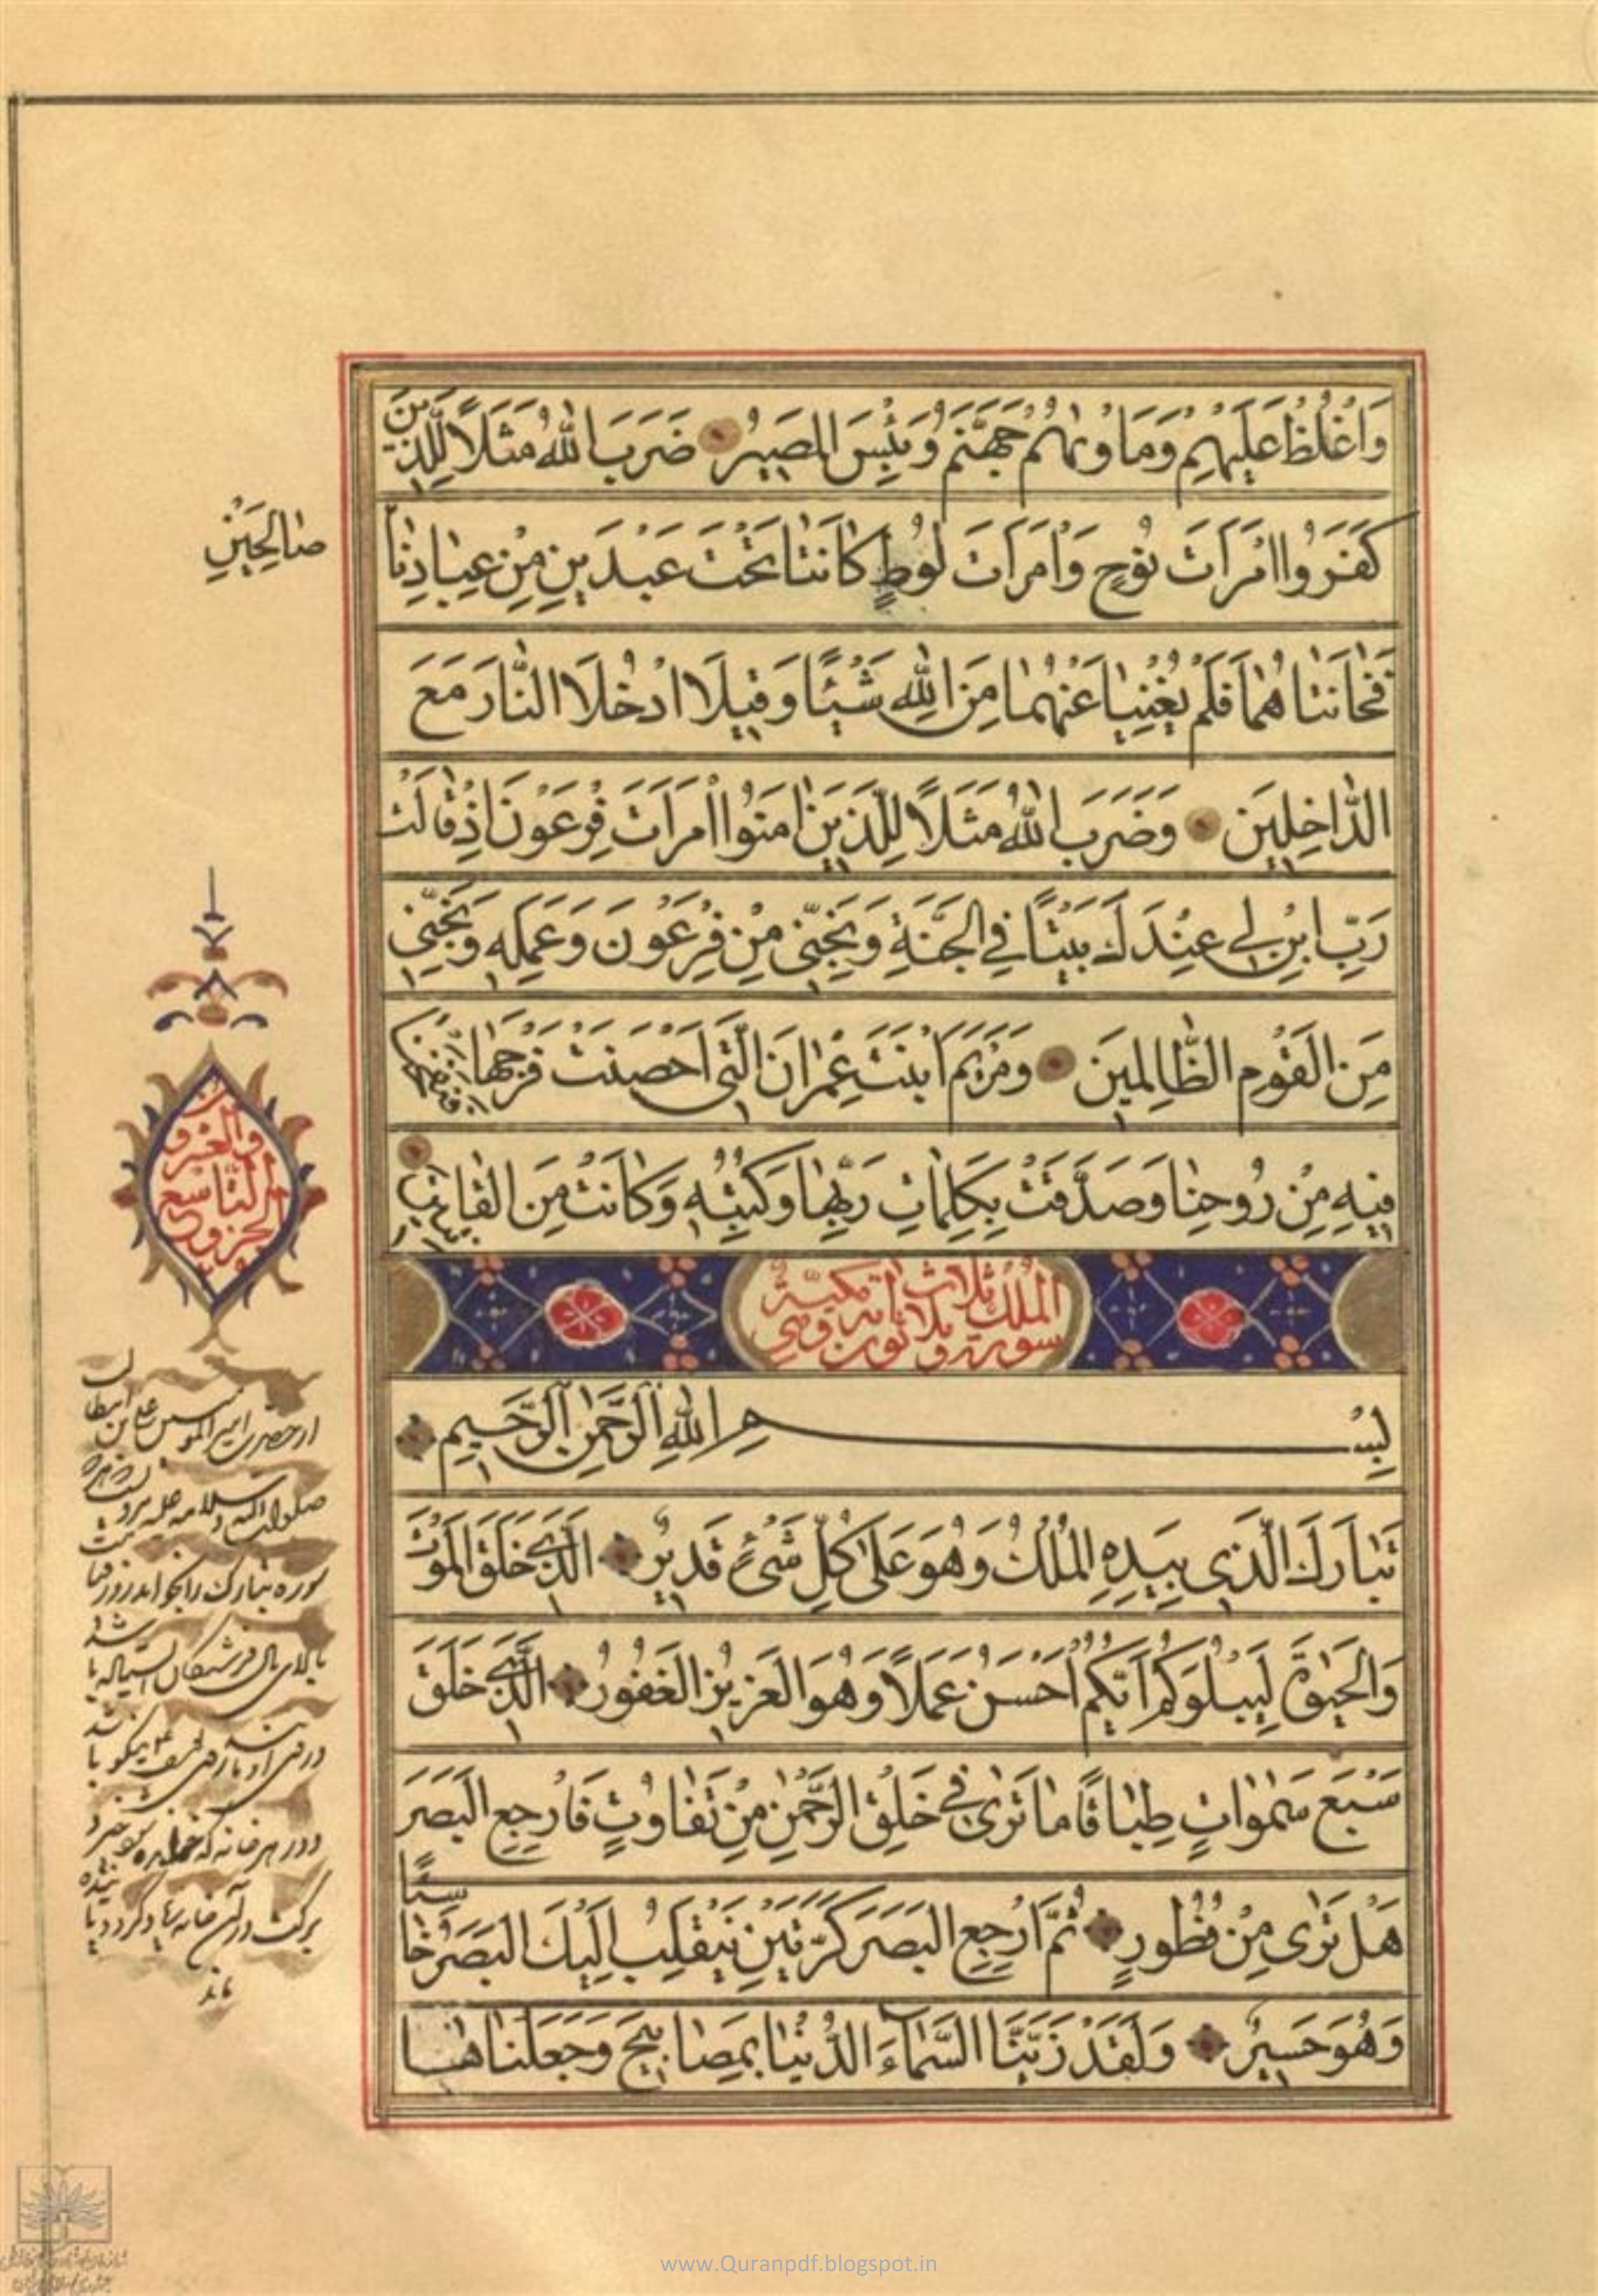 وَاغْلُظْ عَلَيْهِمْ وَمَاْوٰيهُمْ جَهَنَّمُ وَبِئْسَ الْمَصِيرُ ضَرَبَ اللّٰهُ مَثَلًا لِلَّذِينَ
كَفَرُوا امْرَاَتَ نُوحٍ وَامْرَاَتَ لُوطٍ كَانَتٰا تَحْتَ عَبْدَيْنِ مِنْ عِبٰادِنٰا
صٰالِحَيْنِ
فَخٰانَتٰاهُمٰا فَلَمْ يُغْنِيٰا عَنْهُمٰا مِنَ اللّٰهِ شَيْئًا وَقِيلَ ادْخُلَا النّٰارَ مَعَ
الدّٰاخِلِينَ وَضَرَبَ اللّٰهُ مَثَلًا لِلَّذِينَ اٰمَنُوا امْرَاَتَ فِرْعَوْنَ اِذْ قٰالَتْ
رَبِّ ابْنِ لِي عِنْدَكَ بَيْتًا فِي الْجَنَّةِ وَنَجِّنِي مِنْ فِرْعَوْنَ وَعَمَلِهِ وَنَجِّنِي
مِنَ الْقَوْمِ الظّٰالِمِينَ وَمَرْيَمَ ابْنَتَ عِمْرٰانَ الَّتِي اَحْصَنَتْ فَرْجَهٰا فَنَفَخْنٰا
فِيهِ مِنْ رُوحِنٰا وَصَدَّقَتْ بِكَلِمٰاتِ رَبِّهٰا وَكُتُبِهِ وَكٰانَتْ مِنَ الْقٰانِتِينَ
الجزو
التاسع
والعشرون
سورة الملك ثلاث وثلاثون اية وهي مكية
بِسْمِ اللّٰهِ الرَّحْمٰنِ الرَّحِيمِ
تَبٰارَكَ الَّذِي بِيَدِهِ الْمُلْكُ وَهُوَ عَلٰى كُلِّ شَيْءٍ قَدِيرٌ الَّذِي خَلَقَ الْمَوْتَ
وَالْحَيٰوةَ لِيَبْلُوَكُمْ اَيُّكُمْ اَحْسَنُ عَمَلًا وَهُوَ الْعَزِيزُ الْغَفُورُ الَّذِي خَلَقَ
سَبْعَ سَمٰوٰاتٍ طِبٰاقًا مٰا تَرٰى فِي خَلْقِ الرَّحْمٰنِ مِنْ تَفٰاوُتٍ فَارْجِعِ الْبَصَرَ
هَلْ تَرٰى مِنْ فُطُورٍ ثُمَّ ارْجِعِ الْبَصَرَ كَرَّتَيْنِ يَنْقَلِبْ اِلَيْكَ الْبَصَرُ خٰاسِئًا
وَهُوَ حَسِيرٌ وَلَقَدْ زَيَّنَّا السَّمٰاءَ الدُّنْيٰا بِمَصٰابِيحَ وَجَعَلْنٰاهٰا
از حضرت امير المؤمنين على بن ابيطالب
صلوات الله و سلامه عليه
سوره تبارك را بخواند روز قيامت
بالاى بال فرشتگان
و در هر خانه كه
بركت در آن خانه
www.Quranpdf.blogspot.in